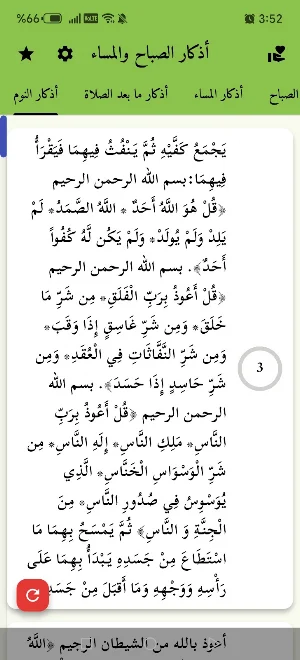 %66 VoLTE 3:52
أذكار الصباح والمساء
الصباح أذكار المساء أذكار ما بعد الصلاة أذكار النوم
يَجْمَعُ كَفَّيْهِ ثُمَّ يَنْفُثُ فِيهِمَا فَيَقْرَأُ
فِيهِمَا: بسم الله الرحمن الرحيم
﴿قُلْ هُوَ اللَّهُ أَحَدٌ* اللَّهُ الصَّمَدُ* لَمْ
يَلِدْ وَلَمْ يُولَدْ* وَلَمْ يَكُن لَّهُ كُفُواً
أَحَدٌ﴾. بسم الله الرحمن الرحيم
﴿قُلْ أَعُوذُ بِرَبِّ الْفَلَقِ* مِن شَرِّ مَا
خَلَقَ* وَمِن شَرِّ غَاسِقٍ إِذَا وَقَبَ*
وَمِن شَرِّ النَّفَّاثَاتِ فِي الْعُقَدِ* وَمِن
شَرِّ حَاسِدٍ إِذَا حَسَدَ﴾. بسم الله
الرحمن الرحيم ﴿قُلْ أَعُوذُ بِرَبِّ
النَّاسِ* مَلِكِ النَّاسِ* إِلَهِ النَّاسِ* مِن
شَرِّ الْوَسْوَاسِ الْخَنَّاسِ* الَّذِي
يُوَسْوِسُ فِي صُدُورِ النَّاسِ* مِنَ
الْجِنَّةِ وَ النَّاسِ﴾ ثُمَّ يَمْسَحُ بِهِمَا مَا
اسْتَطَاعَ مِنْ جَسَدِهِ يَبْدَأُ بِهِمَا عَلَى
رَأْسِهِ وَوَجْهِهِ وَمَا أَقبَلَ مِنْ جَسَدِ
3
أعوذ بالله من الشيطان الرجيم ﴿اللَّهُ